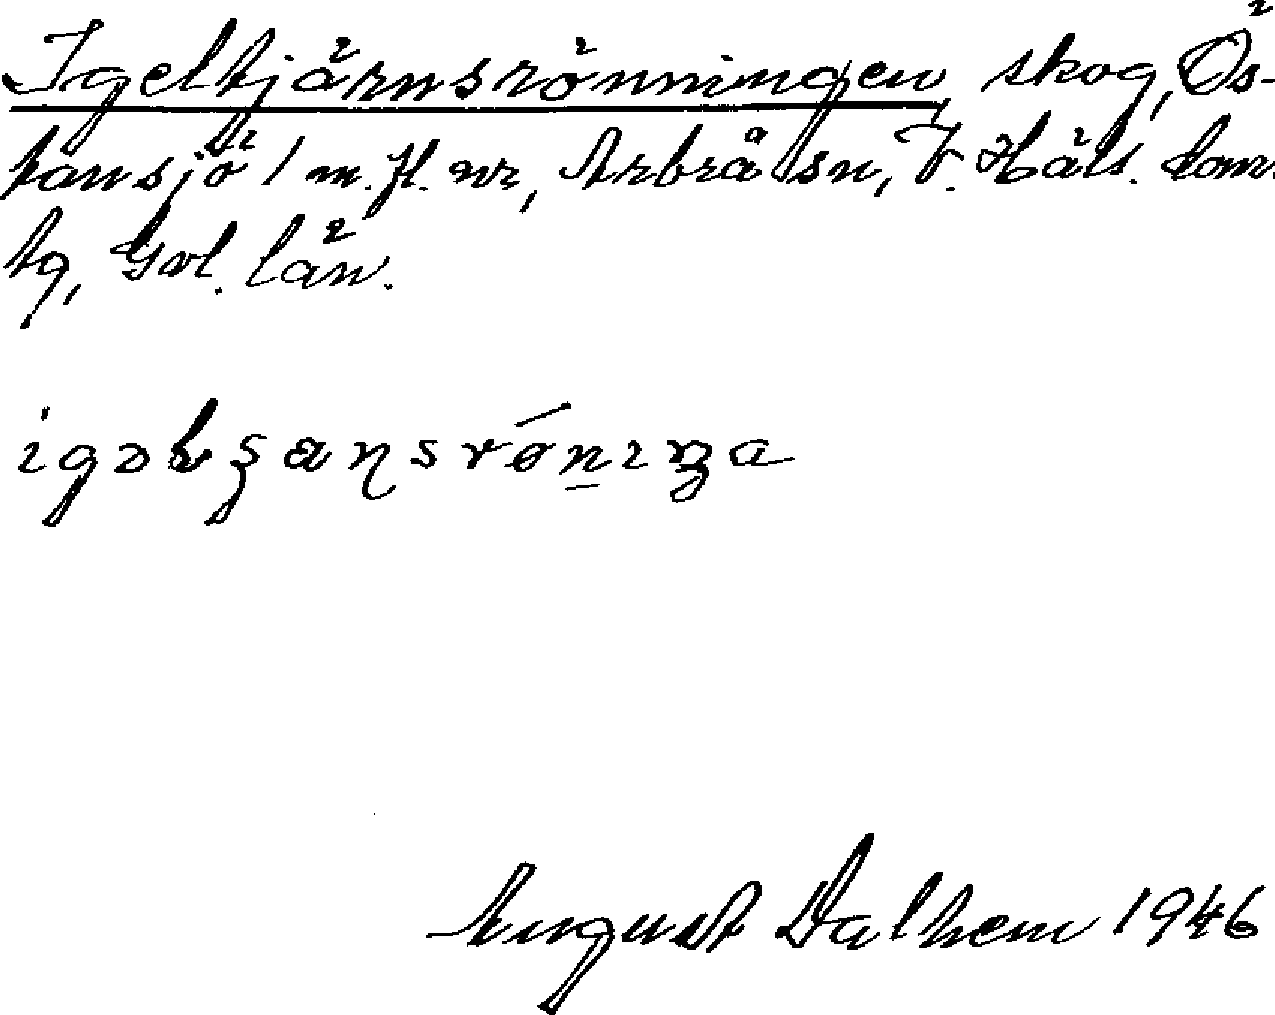 Igeltjärnsrönningen, skog, Ös-
tansjö 1 m. fl. nr, Arbrå sn, V. Häls. dom-
tg, Gvl. län.
August Dalhem 1946